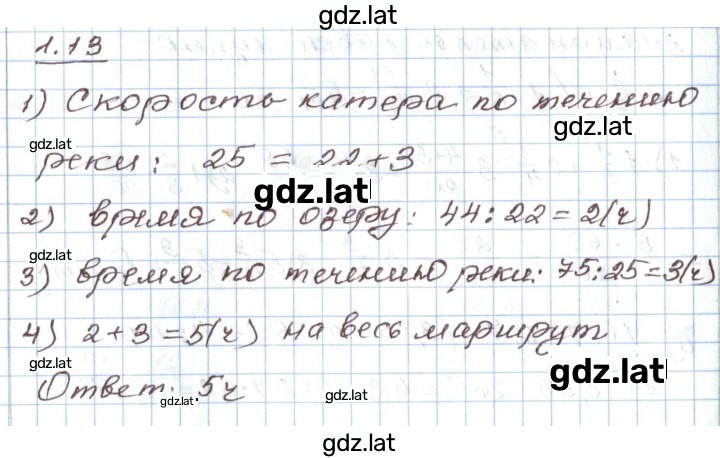 gdz.lat
1.13
1) Скорость катера по течению
gdz.lat
gdz.lat
реки: 25 = 22+3
gdz.lat
2) время по озеру: 44:22=2(ч)
gdz.lat
3) время по течению реки: 75:25=3(ч)
4) 2+3=5(ч) на весь маршрут
gdz.lat
gdz.lat
Ответ: 5ч
gdz.lat
gdz.lat
gdz.lat